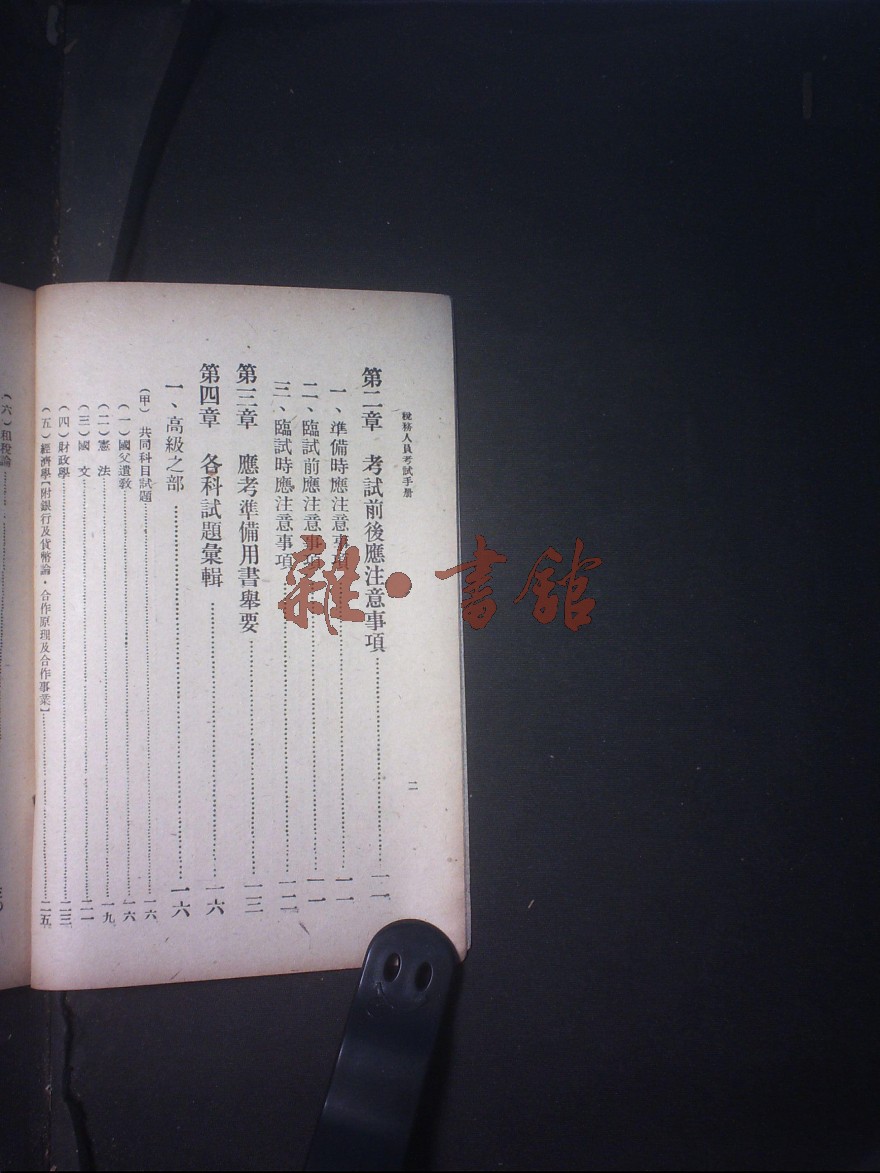 稅務人員考試手册
二
第二章　考試前後應注意事項…………一一
一、準備時應注意事項…………一一
二、臨試前應注意事項…………一一
三、臨試時應注意事項…………一二
第三章　應考準備用書舉要…………一三
第四章　各科試題彙輯…………一六
一、高級之部…………一六
（甲）共同科目試題…………一六
（一）國父遺教…………一六
（二）憲　法…………一九
（三）國　文…………二一
（四）財政學…………二三
（五）經濟學【附銀行及貨幣論・合作原理及合作事業】…………二五
（六）租稅論…………
雜・書館